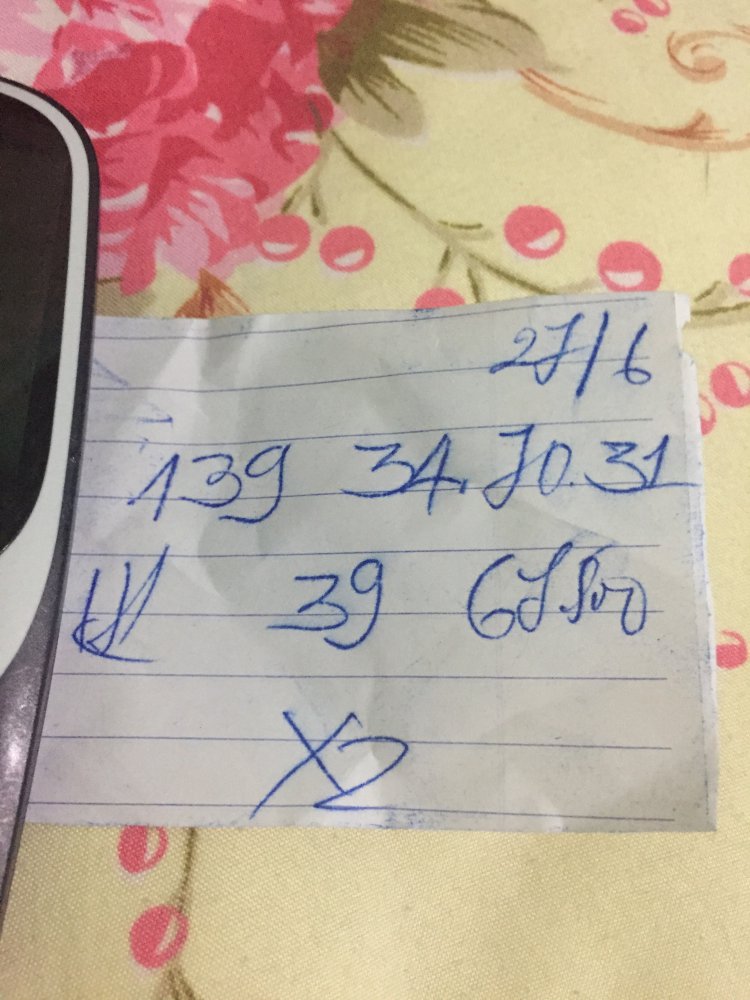 27/6
139 34. 70. 31
39 67
X2